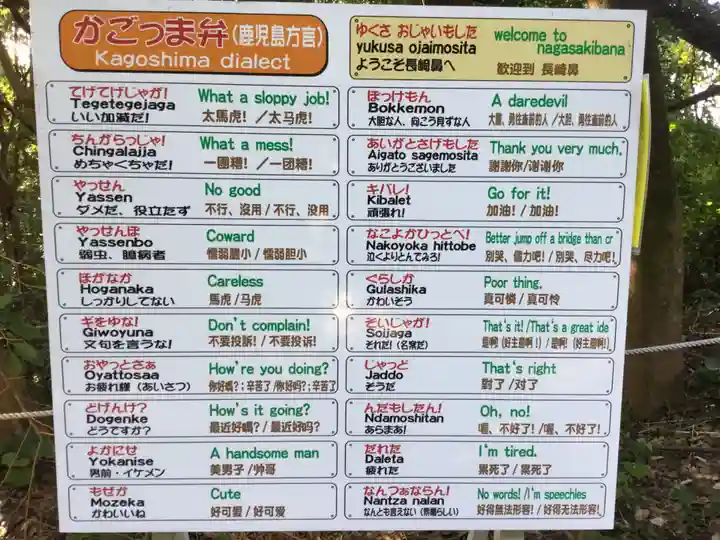 かごっま弁(鹿児島方言)
Kagoshima dialect
ゆくさ おじゃいもした
yukusa ojaimosita
ようこそ長崎鼻へ
welcome to
nagasakibana
歓迎到 長崎鼻
てげてげじゃが!
Tegetegejaga
いい加減だ!
What a sloppy job!
太馬虎! /太马虎!
ちんがらっじゃ!
Chingalajja
めちゃくちゃだ!
What a mess!
一團糟! /一团糟!
やっせん
Yassen
ダメだ、役立たず
No good
不行、沒用 / 不行、没用
やっせんぼ
Yassenbo
弱虫、臆病者
Coward
懦弱膽小 / 懦弱胆小
ほがなか
Hoganaka
しっかりしてない
Careless
馬虎 / 马虎
ギをゆな!
Giwoyuna
文句を言うな!
Don't complain!
不要投訴! / 不要投诉!
おやっとさぁ
Oyattosaa
お疲れ様(あいさつ)
How're you doing?
你好嗎?;辛苦了 /你好吗?;辛苦了
どげんけ?
Dogenke
どうですか?
How's it going?
最近好嗎? / 最近好吗?
よかにせ
Yokanise
男前・イケメン
A handsome man
美男子 / 帅哥
もぜか
Mozeka
かわいいね
Cute
好可愛 / 好可爱
ぼっけもん
Bokkemon
大胆な人、向こう見ずな人
A daredevil
あいがとさげもした
Aigato sagemosita
ありがとうございました
Thank you very much.
謝謝你/谢谢你
キバレ!
Kibalet
頑張れ!
Go for it!
加油! / 加油!
なこよかひっとべ!
Nakoyoka hittobe
泣くよりとんでみろ!
Better jump off a bridge than cr
別哭、儘力吧! / 别哭、尽力吧!
ぐらしか
Gulashika
かわいそう
Poor thing.
真可憐 / 真可怜
そいじゃが!
Soijaga
それだ! (名案だ)
That's it! /That's a great ide
是啊! (好主意啊!) / 是啊! (好主意啊!)
じゃっど
Jaddo
そうだ
That's right
對了 / 对了
んだもしたん!
Ndamoshitan
あらまあ!
Oh, no!
喔、不好了! /喔、不好了!
だれた
Daleta
疲れた
I'm tired.
累死了 / 累死了
なんつぁならん!
Nantza nalan
なんとも言えない (素晴らしい)
No words! /I'm speechles
好得無法形容! / 好得无法形容!